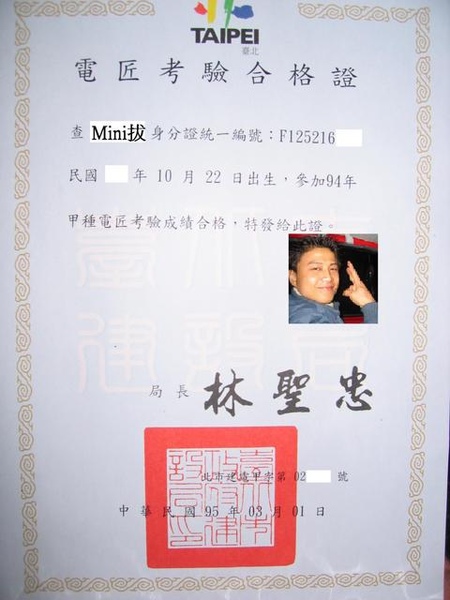 TAIPEI
臺北
電匠考驗合格證
查 Mini拔 身分證統一編號：F125216
民國 年 10 月 22 日出生，參加94年
甲種電匠考驗成績合格，特發給此證。
局長 林聖忠
北市建處甲字第 02 號
中華民國 95 年 03 月 01 日